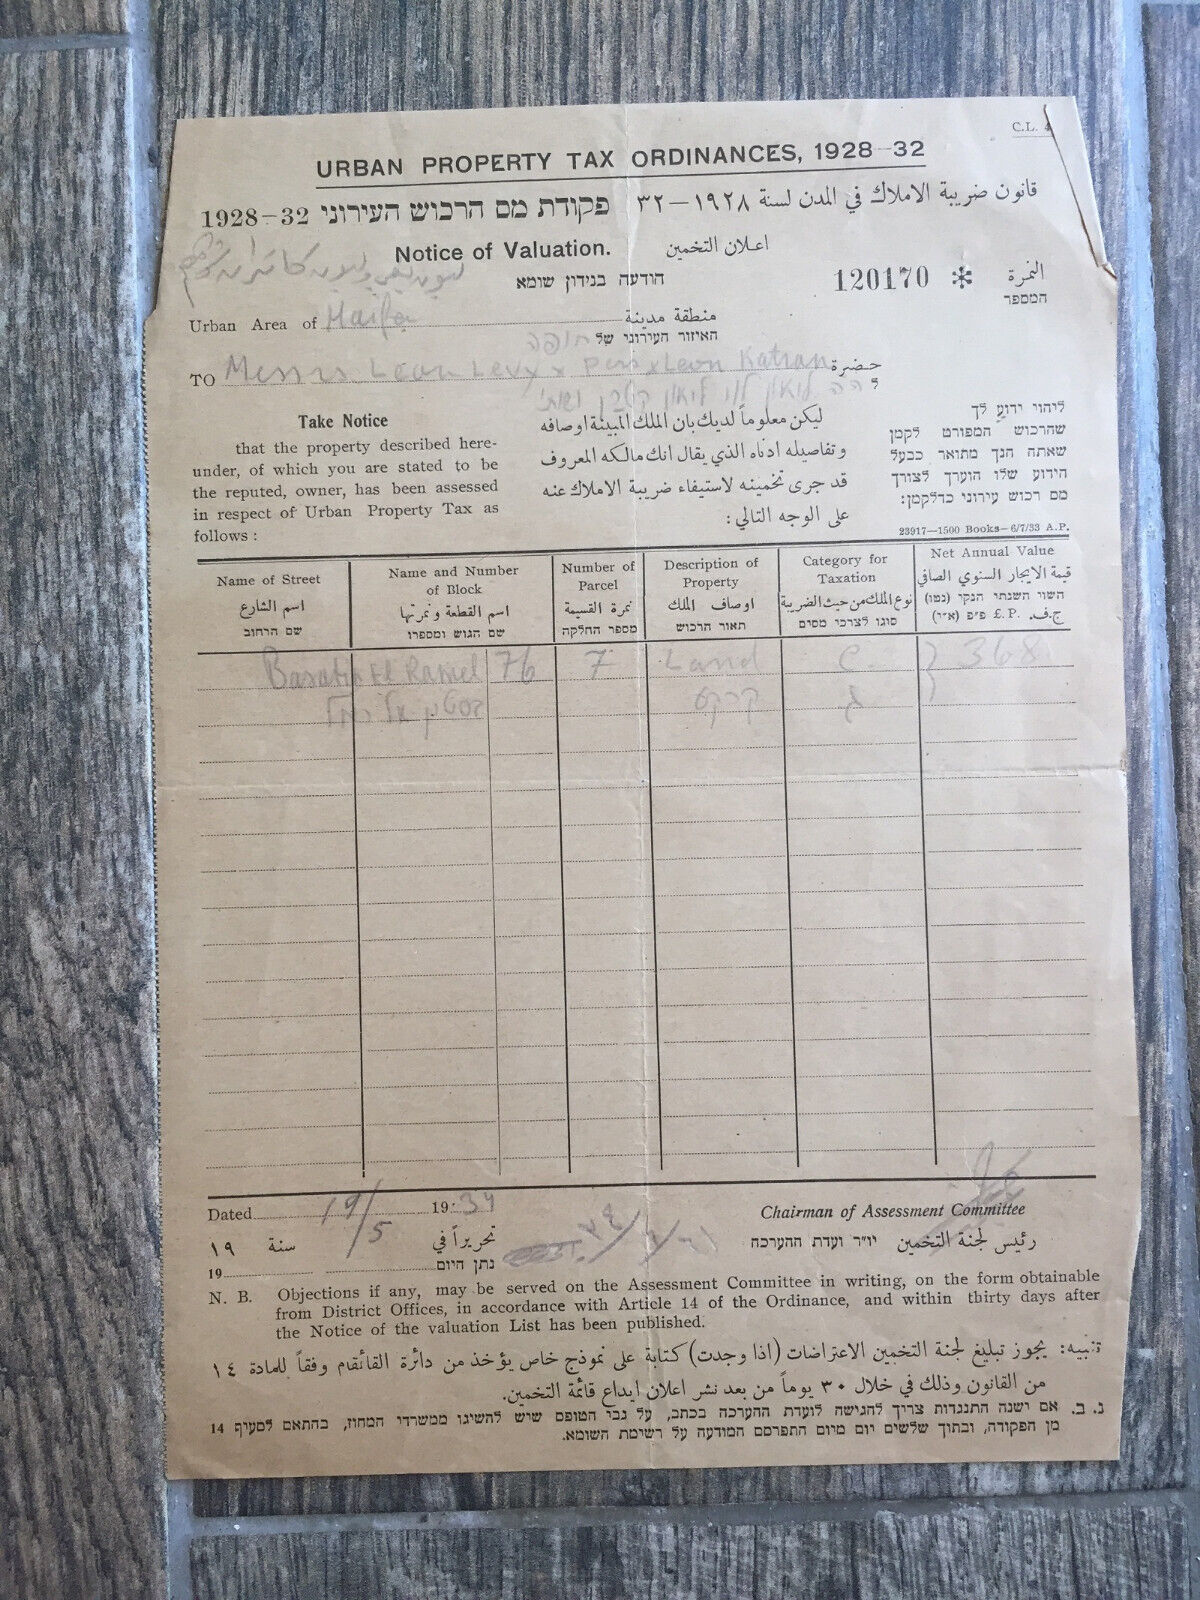 C.L. 4
URBAN PROPERTY TAX ORDINANCES, 1928-32
قانون ضريبة الاملاك في المدن لسنة ١٩٢٨-٣٢
פקודת מס הרכוש העירוני 1928-32
Notice of Valuation.
اعلان التخمين
הודעה בנידון שומא
النمرة
120170 *
המספר
Urban Area of Haifa
منطقة مدينة
האיזור העירוני של חיפה
TO Messrs Leon Levy & Leon Katran
حضرة
ל ה״ה ליאון לוי ליאון קטרן ושות׳
Take Notice
that the property described here-
under, of which you are stated to be
the reputed, owner, has been assessed
in respect of Urban Property Tax as
follows :
ليكن معلوماً لديك بان الملك المبينة اوصافه
وتفاصيله ادناه الذي يقال انك مالكه المعروف
قد جرى تخمينه لاستيفاء ضريبة الاملاك عنه
على الوجه التالي :
ליהוי ידוע לך
שהרכוש המפורט לקמן
שאתה הנך מתואר כבעל
הידוע שלו הוערך לצורך
מס רכוש עירוני כדלקמן:
23917—1500 Books—6/7/33 A.P.
Name of Street
اسم الشارع
שם הרחוב
Name and Number of Block
اسم القطعة ونمرتها
שם הגוש ומספרו
Number of Parcel
نمرة القسيمة
מספר החלקה
Description of Property
اوصاف الملك
תאור הרכוש
Category for Taxation
نوع الملك من حيث الضريبة
סוגו לצרכי מסים
Net Annual Value
قيمة الايجار السنوي الصافي
השווי השנתי הנקי (נטו)
ج.ف. £.P. פ״פ (א״י)
Basatin El Ramel 76 7 Land C. } 368
בסטין אל רמל קרקע ג
Dated 19/5 1934
Chairman of Assessment Committee
تحريراً في
سنة ١٩
رئيس لجنة التخمين
יו״ר ועדת ההערכה
נתן היום
19
N. B. Objections if any, may be served on the Assessment Committee in writing, on the form obtainable
from District Offices, in accordance with Article 14 of the Ordinance, and within thirty days after
the Notice of the valuation List has been published.
تنبيه: يجوز تبليغ لجنة التخمين الاعتراضات (اذا وجدت) كتابة على نموذج خاص يؤخذ من دائرة القائمقام وفقاً للمادة ١٤
من القانون وذلك في خلال ٣٠ يوماً من بعد نشر اعلان ايداع قائمة التخمين.
נ. ב. אם ישנה התנגדות צריך להגישה לועדת ההערכה בכתב, על גבי הטופס שיש להשיגו ממשרדי המחוז, בהתאם לסעיף 14
מן הפקודה, ובתוך שלשים יום מיום התפרסם המודעה על רשימת השומא.